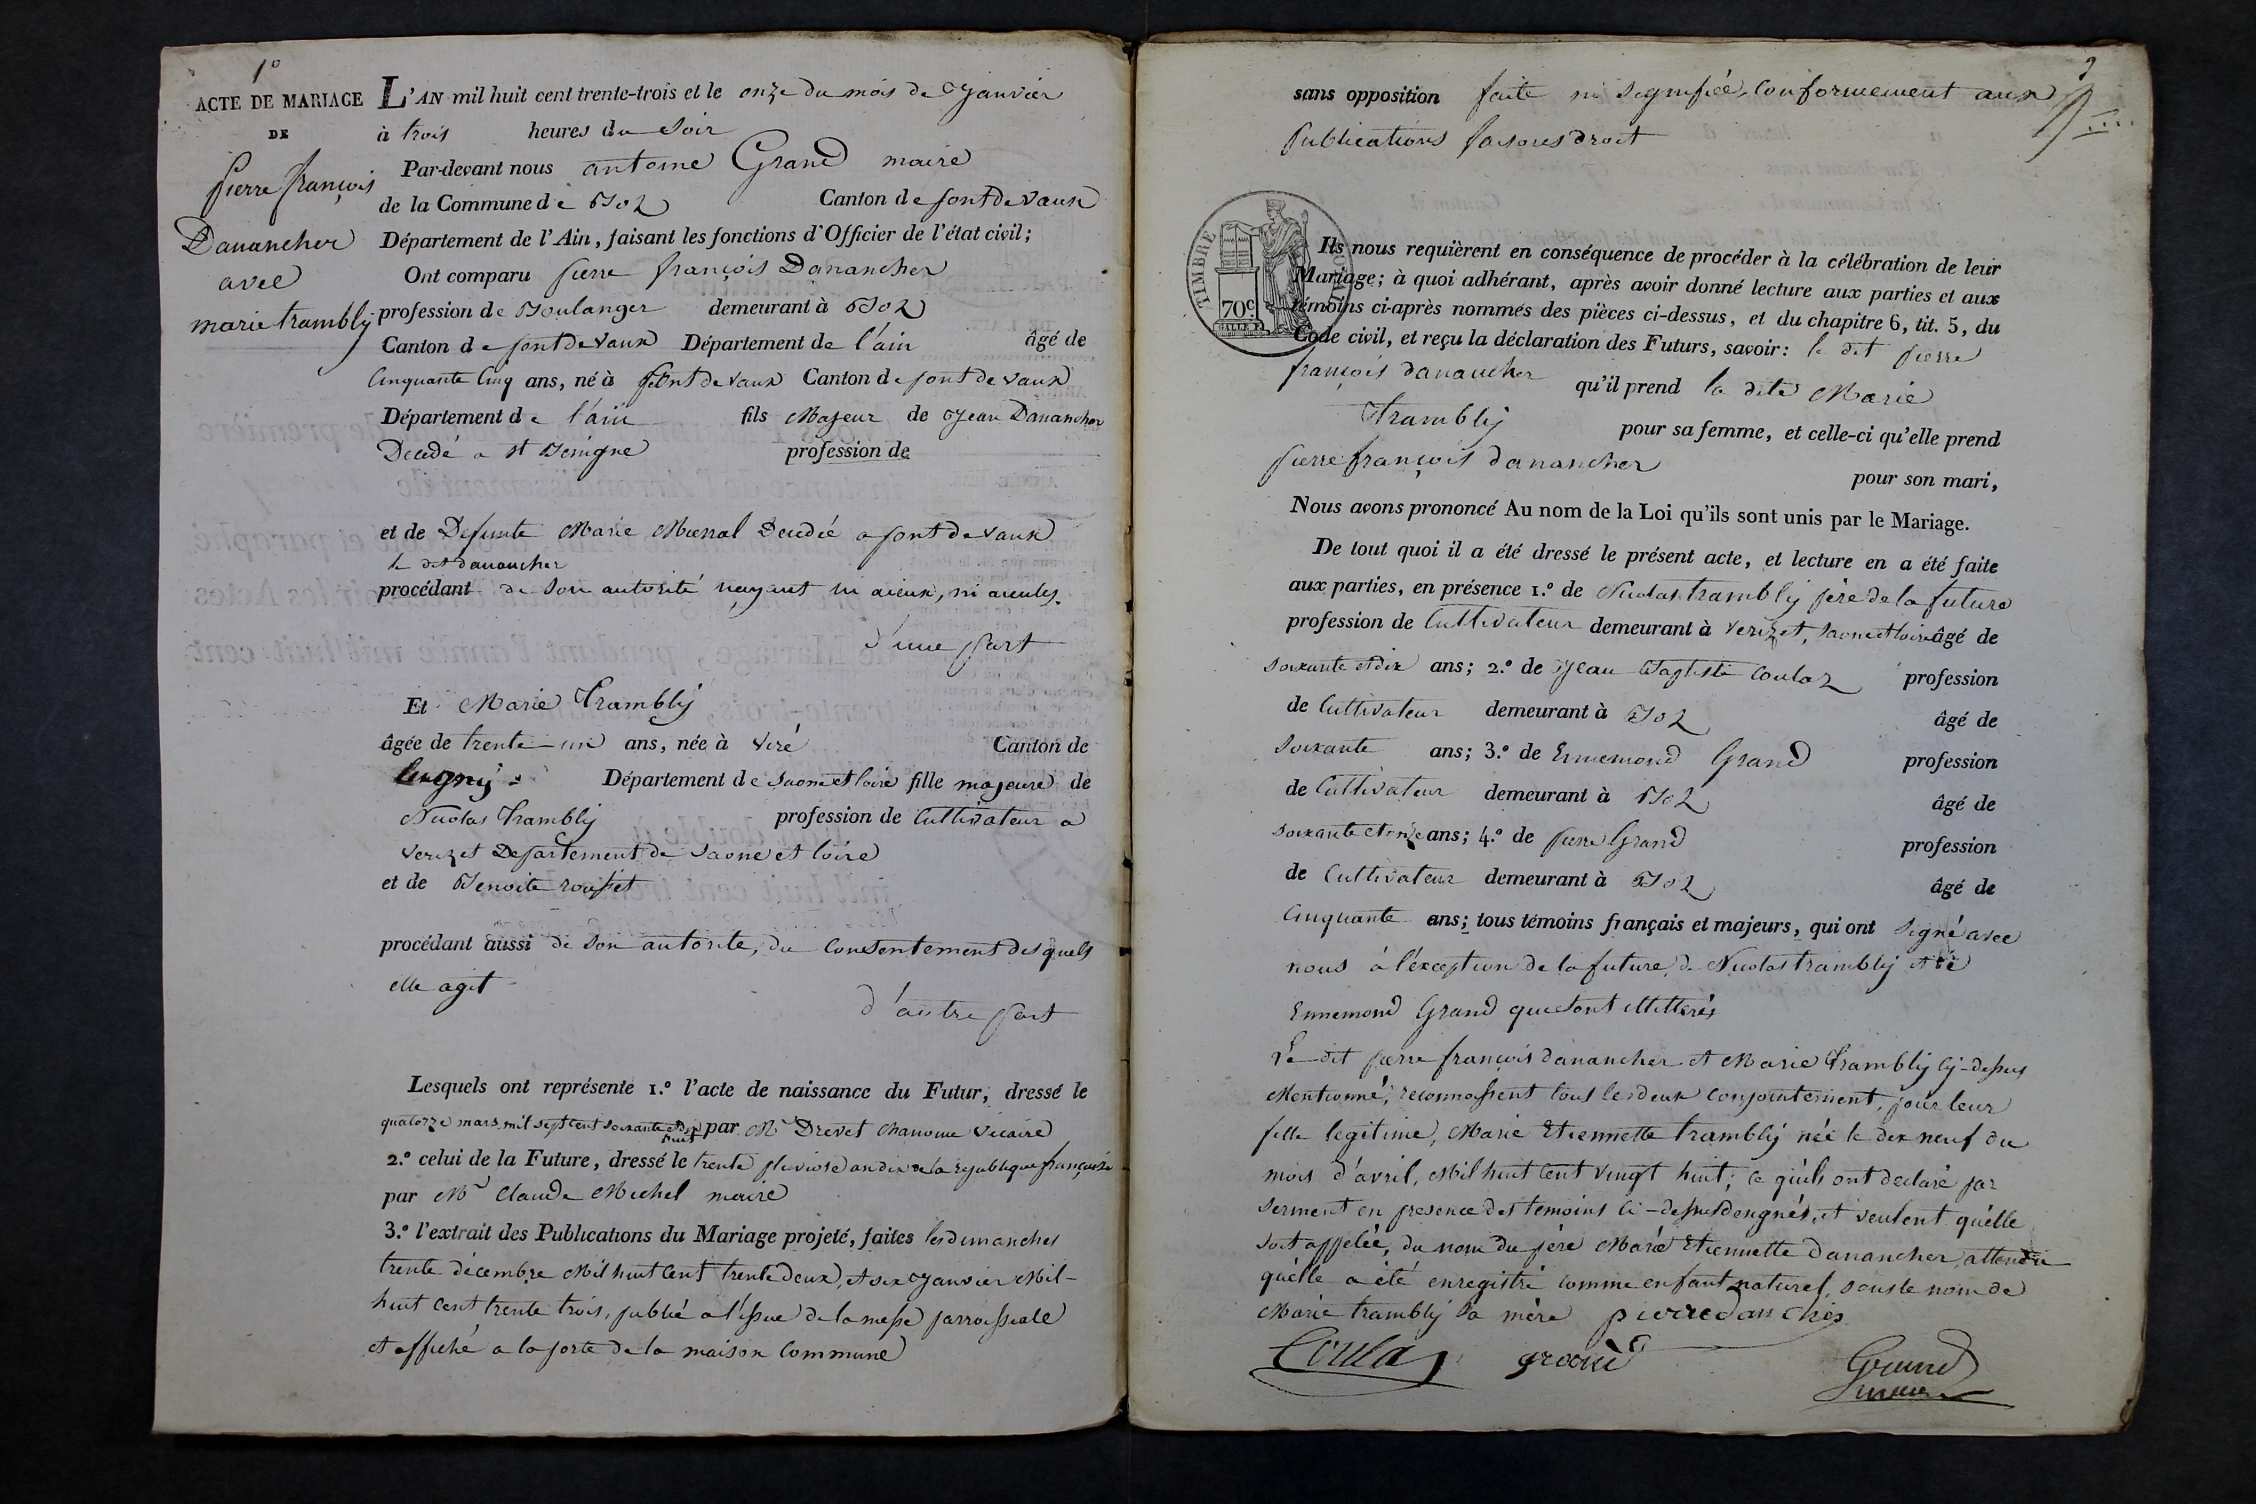 1º
ACTE DE MARIAGE
DE
pierre françois
Danancher
avec
marie trambly
L'AN mil huit cent trente-trois et le onze du mois de Janvier
à trois heures du Soir
Par-devant nous antoine Grand maire
de la Commune de Boz Canton de pont de vaux
Département de l'Ain, faisant les fonctions d'Officier de l'état civil;
Ont comparu pierre françois Danancher
profession de Boulanger demeurant à Boz
Canton de pont de vaux Département de l'ain âgé de
Cinquante Cinq ans, né à pont de vaux Canton de pont de vaux
Département de l'ain fils Majeur de Jean Danancher
Decedé a st Benigne profession de
et de Defunte Marie Decedée a pont de vaux
le dit danancher
procédant de Son autorité nayant ni aieux, ni aieules.
d'une part
Et Marie Trambly
âgée de trente-un ans, née à Viré Canton de
Lugny Département de Saone et loire fille majeure de
Nicolas Trambly profession de Cultivateur a
Verizet Departement de Saone et loire
et de Benoite rousset
procédant aussi de Son autorite, du Consentement desquels
elle agit
d'autre part
Lesquels ont représente 1.º l'acte de naissance du Futur, dressé le
quatorze mars mil sept cent soixante et dix huit par Mr Drevet chanoine vicaire
2.º celui de la Future, dressé le trente pluviose an dix de la republique française
par Mr Claude Michel maire
3.º l'extrait des Publications du Mariage projeté, faites les dimanches
trente décembre Mil huit Cent trente deux, et six Janvier Mil-
huit Cent trente trois, publié a l'issue de la messe parroissiale
et affiché a la porte de la maison Commune
sans opposition faite ni Signifiée, Conformement aux
publications
TIMBRE ROYAL
70c
Ils nous requièrent en conséquence de procéder à la célébration de leur
Mariage; à quoi adhérant, après avoir donné lecture aux parties et aux
témoins ci-après nommés des pièces ci-dessus, et du chapitre 6, tit. 5, du
Code civil, et reçu la déclaration des Futurs, savoir: le dit pierre
françois danancher qu'il prend la dite Marie
Trambly pour sa femme, et celle-ci qu'elle prend
pierre françois danancher pour son mari,
Nous avons prononcé Au nom de la Loi qu'ils sont unis par le Mariage.
De tout quoi il a été dressé le présent acte, et lecture en a été faite
aux parties, en présence 1.º de Nicolas trambly père de la future
profession de Cultivateur demeurant à Verizet, Saone et loire âgé de
soixante et dix ans; 2.º de Jean Baptiste Coulas profession
de Cultivateur demeurant à Boz âgé de
soixante ans; 3.º de Ennemond Grand profession
de Cultivateur demeurant à Boz âgé de
soixante et onze ans; 4.º de pierre Grand profession
de Cultivateur demeurant à Boz âgé de
Cinquante ans; tous témoins français et majeurs, qui ont signé avec
nous à l'éxception de la future, de Nicolas trambly et de
Ennemond Grand que sont illittérés
Le dit pierre françois danancher et Marie Trambly cy-dessus
Mentionné, reconnoissent tous les deux conjointement, pour leur
fille legitime, Marie Etiennette trambly née le dix neuf du
mois d'avril, Mil huit Cent vingt huit; ce qu'ils ont declaré par
serment en presence des temoins Ci-dessus et veulent qu'elle
soit appelée, du nom du père Marie Etiennette Danancher, attendu
qu'elle a été enregistré comme enfant naturel, sous le nom de
Marie trambly sa mère pierre dananche
Coulas grand Grand
maire